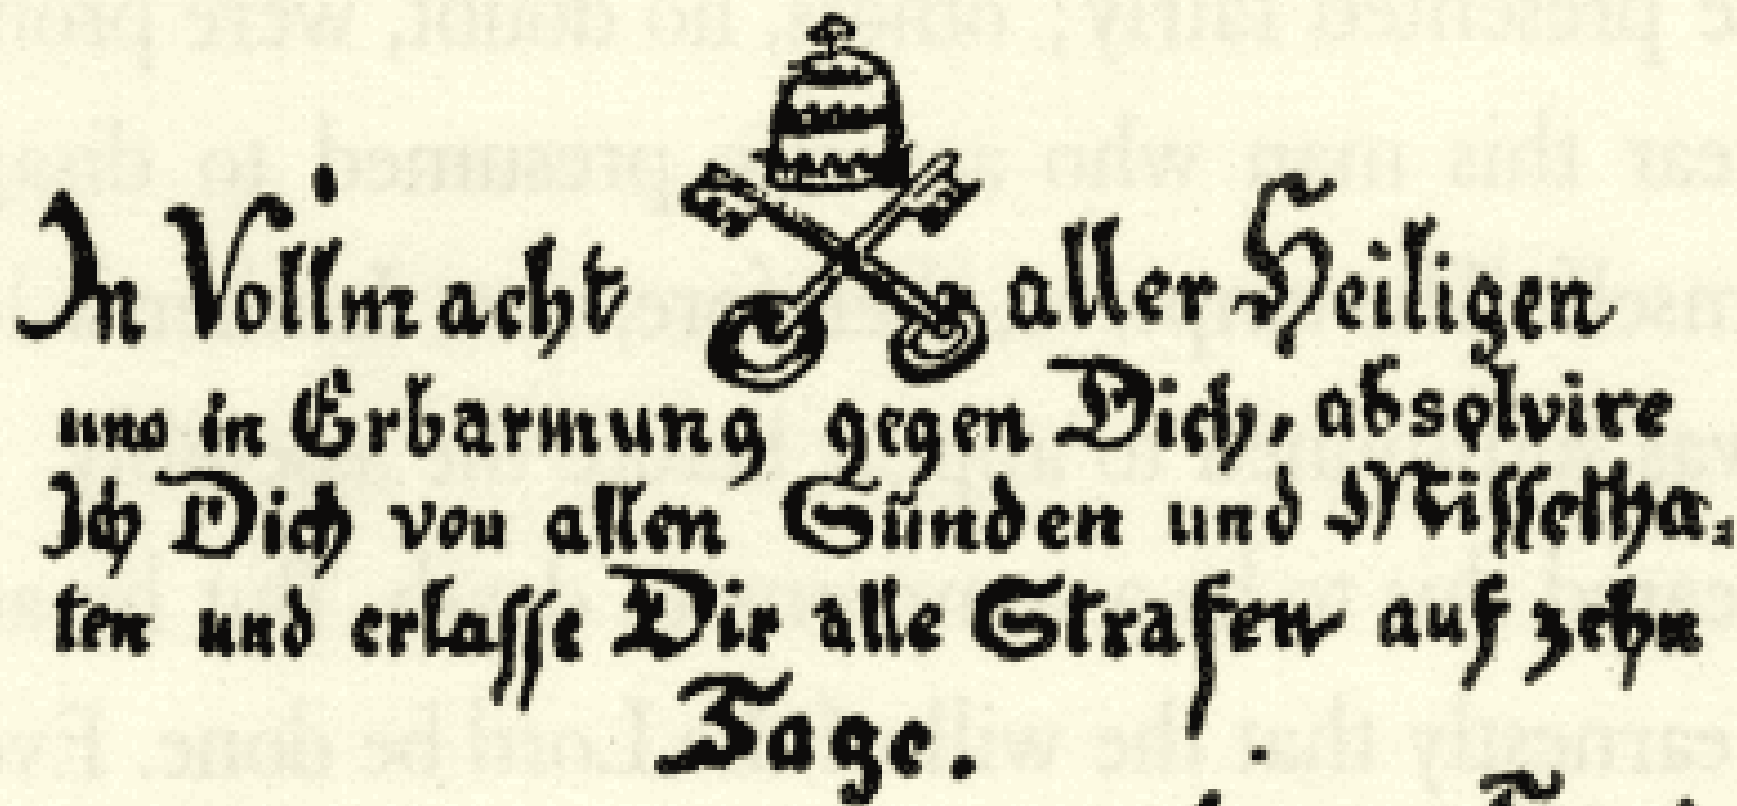 In Vollmacht aller Heiligen
und in Erbarmung gegen Dich, absolvire
Ich Dich von allen Sünden und Missetha⸗
ten und erlasse Dir alle Strafen auf zehn
Tage.